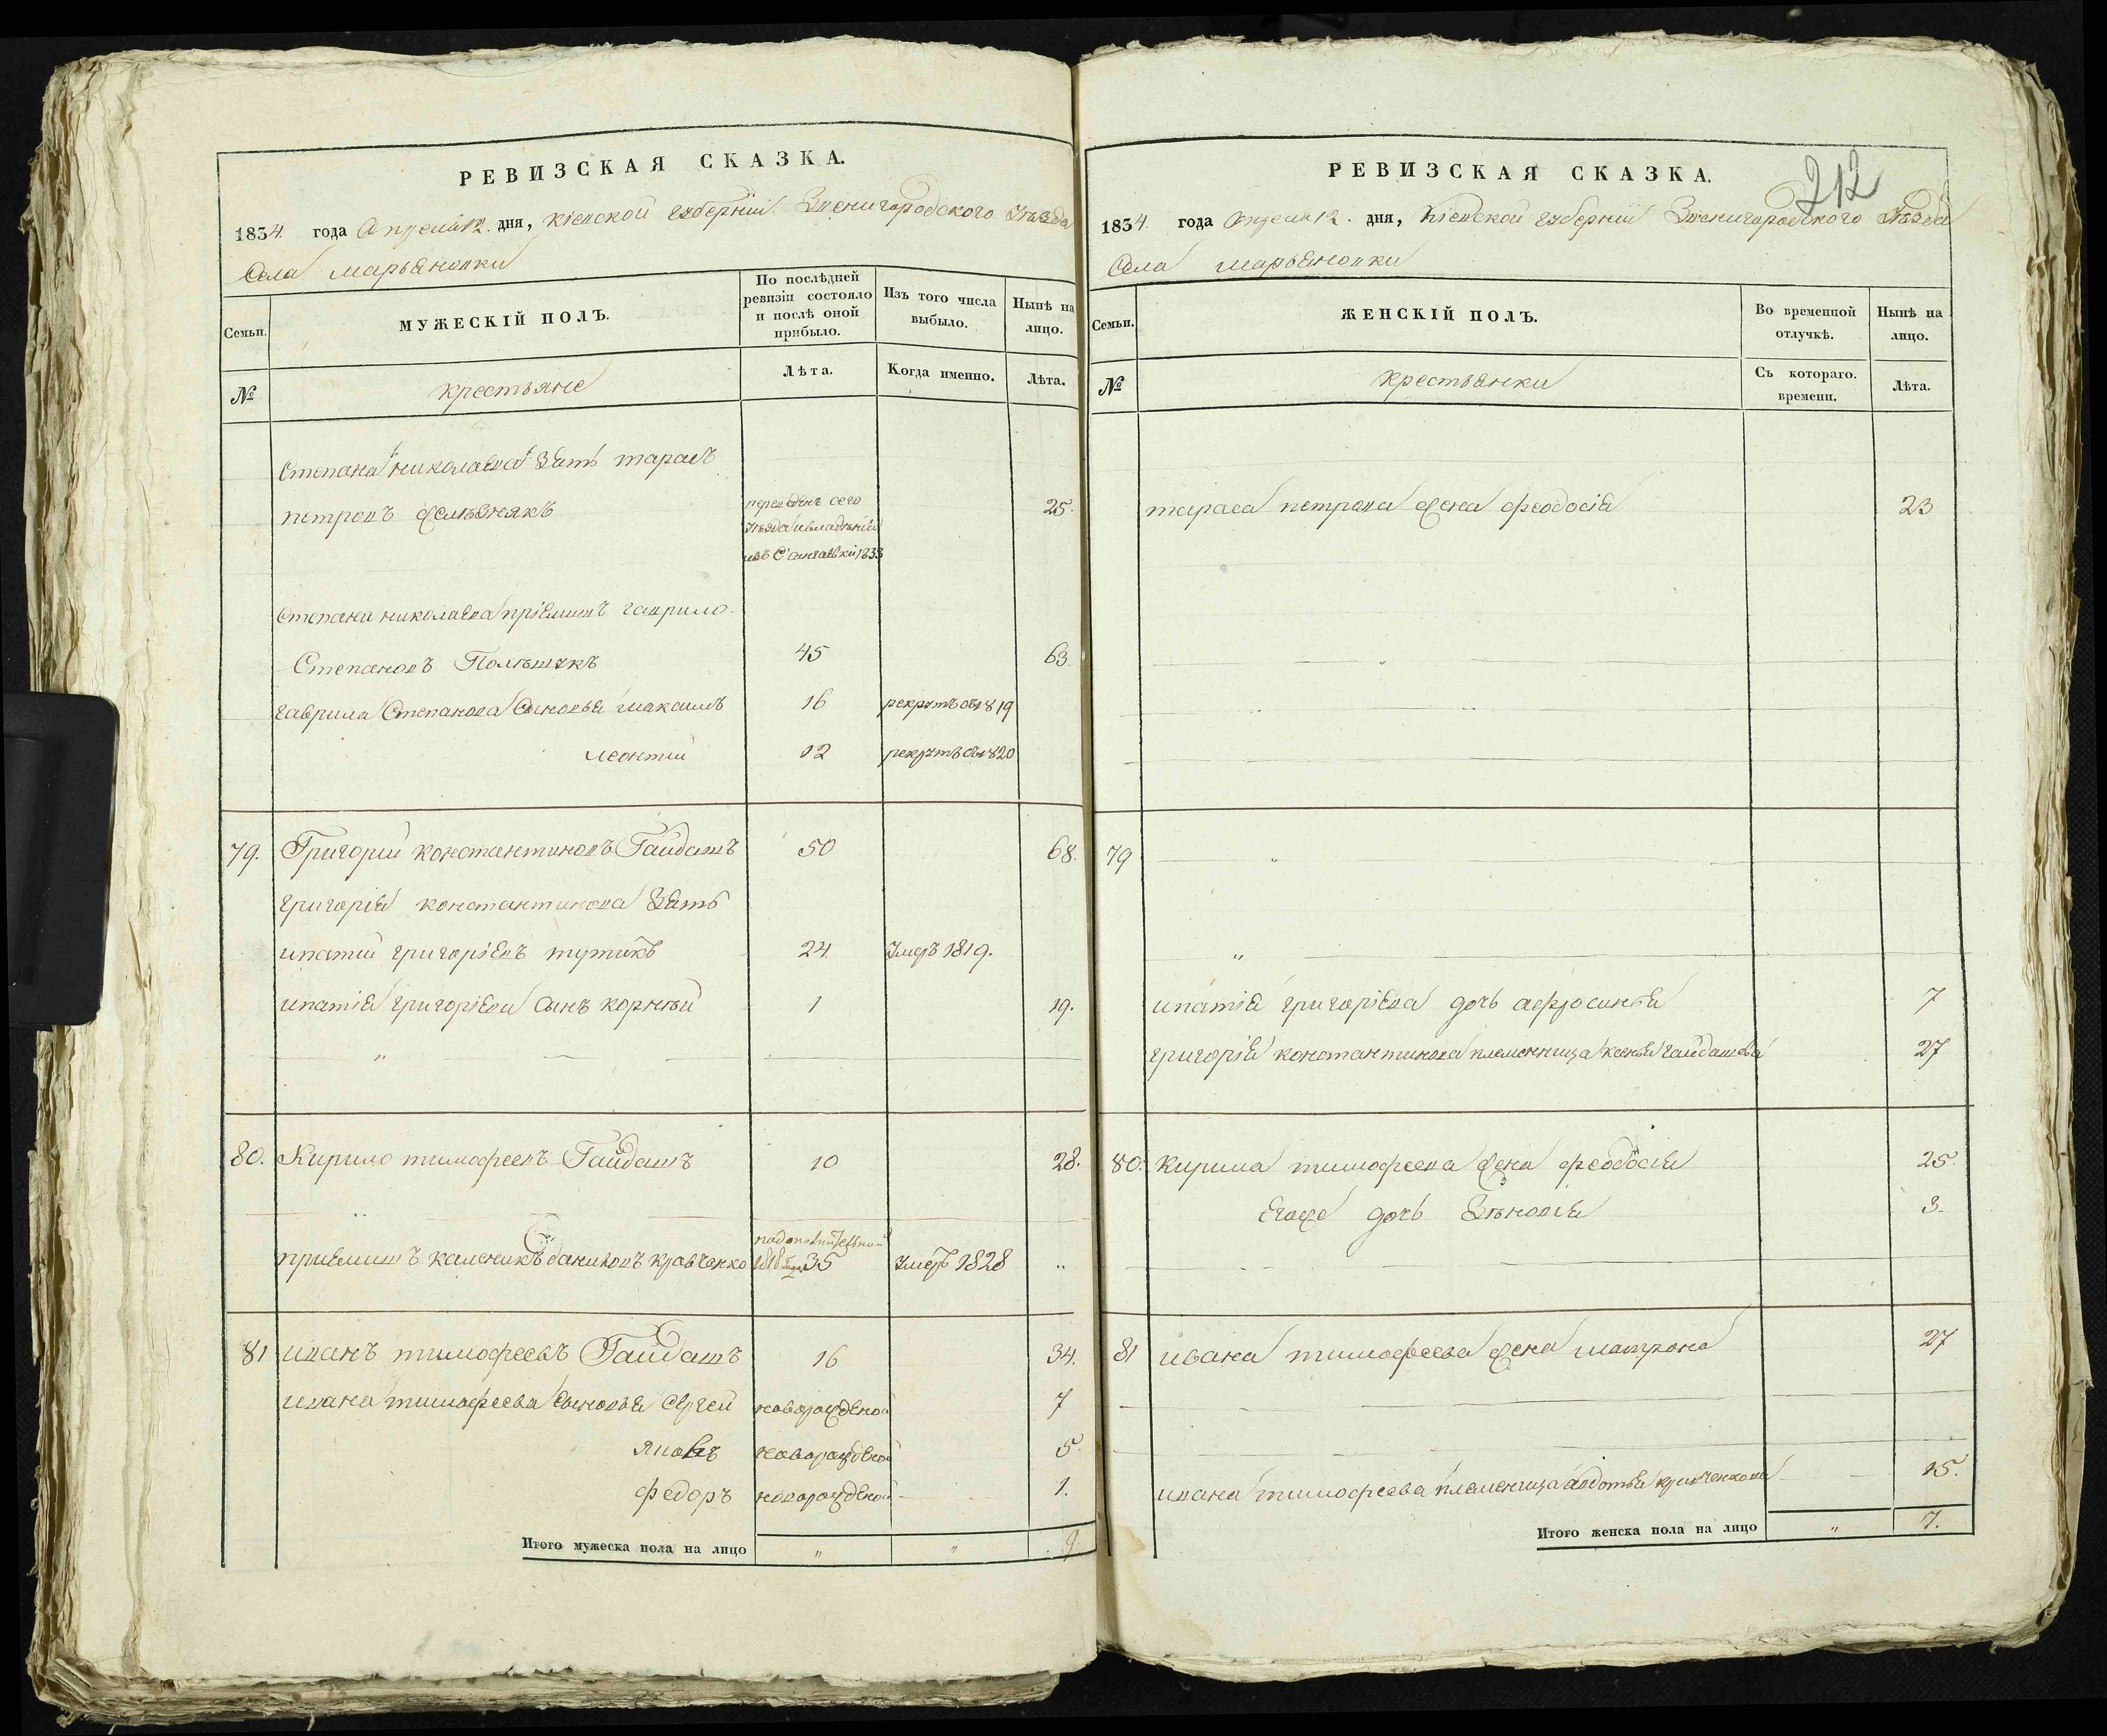 РЕВИЗСКАЯ СКАЗКА.
1834. года Апреля 12. дня, Кіевской губерніи Звенигородского Уѣзда
Села Марьяновки
Семьи.
МУЖЕСКІЙ ПОЛЪ.
По послѣдней ревизіи состояло и послѣ оной прибыло.
Изъ того числа выбыло.
Нынѣ на лицо.
№
крестьяне
Лѣта.
Когда именно.
Лѣта.
Степана николаева зять тарасъ
петровъ Желѣзнякъ
переведенъ сего
Уѣзда
изъ С. 1833
25.
Степана николаева пріемышъ гаврило
Степановъ Полѣщукъ 45 63.
гаврила Степанова Сыновья максимъ 16 рекрутъ въ 1819
леонтий 12 рекрутъ въ 1820
79. Григорий константиновъ Гайдашъ 50 68.
григорія константинова зять
ипатий григоріевъ 24 Умеръ 1819.
ипатія григоріева Сынъ корнѣй 1 19.
80. Кирило тимофеевъ Гайдашъ 10 28.
по дополнительной
пріемышъ каленикъ даниловъ кравченко 1818 года 35 Умеръ 1828
81 иванъ тимофеевъ Гайдашъ 16 34.
ивана тимофеева Сыновья Сергей новорожденой 7
яковъ новорожденой 5.
федоръ новорожденой 1.
Итого мужеска пола на лицо " " 9
212
РЕВИЗСКАЯ СКАЗКА.
1834. года Апреля 12. дня, Кіевской губерніи Звенигородского Уѣзда
Села Марьяновки
Семьи.
ЖЕНСКІЙ ПОЛЪ.
Во временной отлучкѣ.
Нынѣ на лицо.
№
крестьянки
Съ котораго. времени.
Лѣта.
тараса петрова жена феодосія 23
79
ипатія григоріева дочь афросинья 7
григорія константинова племенница ксенья гайдашева 27
80. кирила тимофеева жена феодосія 25.
Егоже дочь Зѣновія 3.
81 ивана тимофеева жена матрона 27
ивана тимофеева племенница авдотья кравченкова 15.
Итого женска пола на лицо " 7.